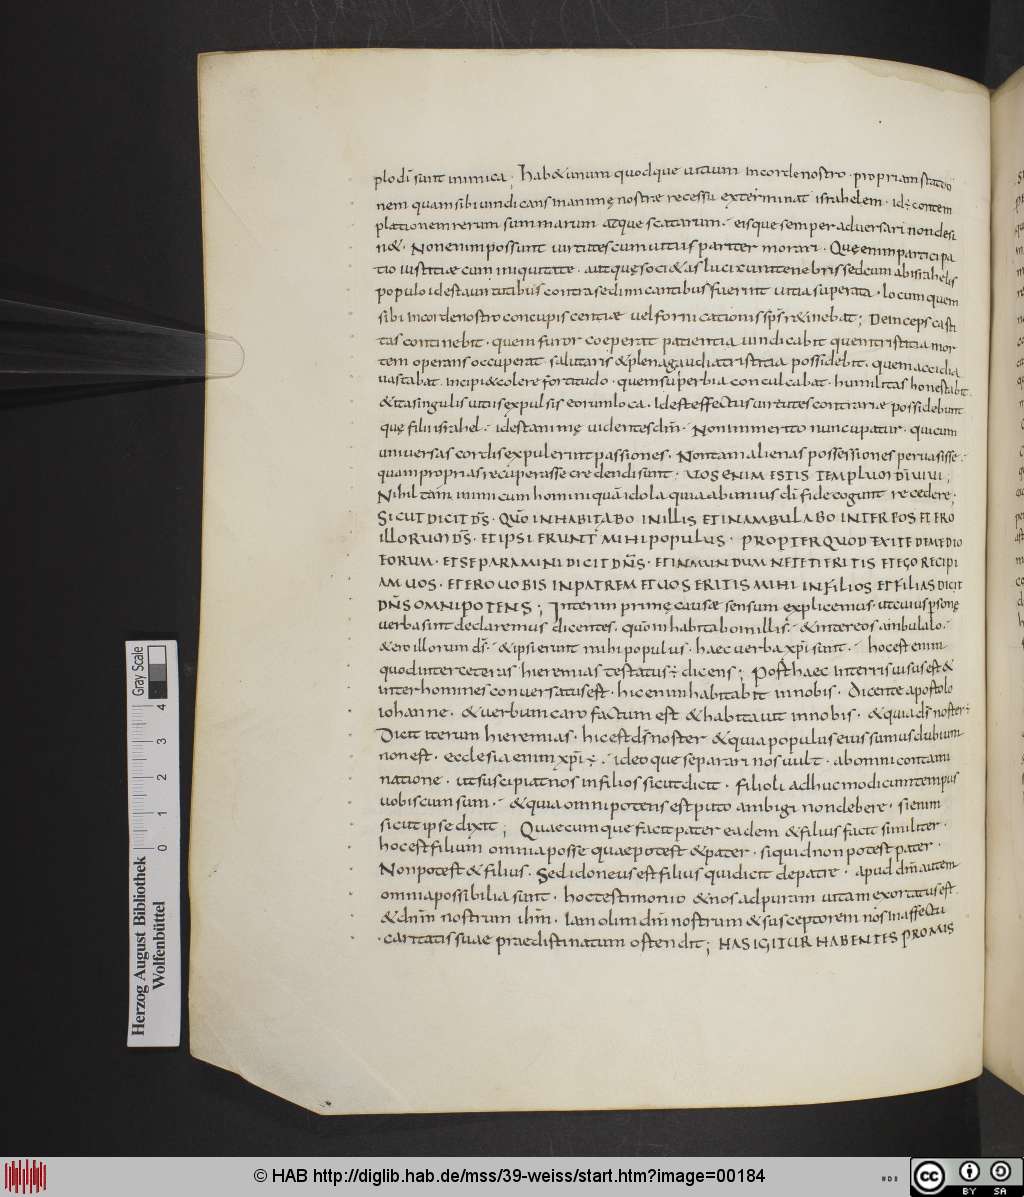 plo dī sunt inimica; hab& unum quodque uitium in corde nostro · propriam statio
nem quam sibi uindicans in animę nostræ recessu exterminat israhelem · id ÷ contem
plationem rerum summarum atque scārarum · eisque semper aduersari non desi
n& · Non enim possunt uirtutes cum uitiis pariter morari · Quę enim participa
tio iustitiæ cum iniquitate · aut quę soci&as luci cum tenebris sed cum ab israhelis
populo id est a uirtutibus contra se dimicantibus fuerint uitia superata · locum quem
sibi in corde nostro concupiscentiæ uel fornicationis sp̄s r&inebat; Deinceps casti
tas continebit · quem furor coeperat patientia uindicabit quem tristitia mor
tem operans occuperat salutaris & plena gaudia tristitia possidebit · quem accidia
uastabat incipi& colere fortitudo · quem superbia conculcabat humilitas honestabit
& ita singulis uitiis expulsis eorum loca · Id est effectus uirtutes contrariæ possidebunt
quę filii israhel · id est animę uidentes dm̄ · Non inmerito nuncupatur · qui cum
uniuersas cordis expulerint passiones · Non tam alienas possessiones peruasisse ·
quam proprias recuperasse credendi sunt · UOS ENIM ESTIS TEMPLUM DĪ UIUI;
Nihil tam inimicum homini quā idola quia ab unius dī fide cogunt recedere;
SICUT DICIT DS̄ · QUŌ INHABITABO IN ILLIS ET INAMBULABO INTER EOS ET ERO
ILLORUM DS̄ · ET IPSI ERUNT MIHI POPULUS · PROPTER QUOD EXITE DE MEDIO
EORUM · ET SEPARAMINI DICIT DN̄S · ET INMUNDUM NE TETIERITIS ET EGO RECIPI
AM UOS · ET ERO UOBIS IN PATREM ET UOS ERITIS MIHI IN FILIOS ET FILIAS DICIT
DN̄S OMNIPOTENS; Interim primę causæ sensum explicemus · ut cuius psonę
uerba sint declaremus dicentes · quōm habitabo in illis · & inter eos ambulabo ·
& ero illorum ds̄ · & ipsi erunt mihi populus · haec uerba xp̄i sunt · hoc est enim
quod inter ceteras hieremias testatus ÷ dicens; Post haec in terris uisus est &
inter homines conuersatus est · hic enim habitabit in nobis · Dicente apostolo
iohanne · & uerbum caro factum est & habitauit in nobis · & quia ds̄ noster ÷
Dicit iterum hieremias · hic est ds̄ noster & quia populus eius sumus dubium
non est · ecclesia enim xp̄i ÷ · ideoque separari nos uult · ab omni contami
natione · ut suscipiat nos in filios sicut dicit · filioli adhuc modicum tempus
uobiscum sum · & quia omnipotens est puto ambigi non debere · si enim
sicut ipse dixit; Quaecumque facit pater eadem & filius facit similiter ·
hoc est filium omnia posse quae potest & pater · si quid non potest pater ·
Non potest & filius · Sed idoneus est filius qui dicit de patre · apud dm̄ autem
omnia possibilia sunt · hoc testimonio & nos ad puram uitam exortatus est
& dn̄m nostrum ihm̄ · Iam olim dm̄ nostrum & susceptorem nōs in affectu
· caritatis suae praedistinatum ostendit; HAS IGITUR HABENTES PROMIS
Herzog August Bibliothek
Wolfenbüttel
0 1 2 3 4
Gray Scale
© HAB http://diglib.hab.de/mss/39-weiss/start.htm?image=00184
cc BY SA